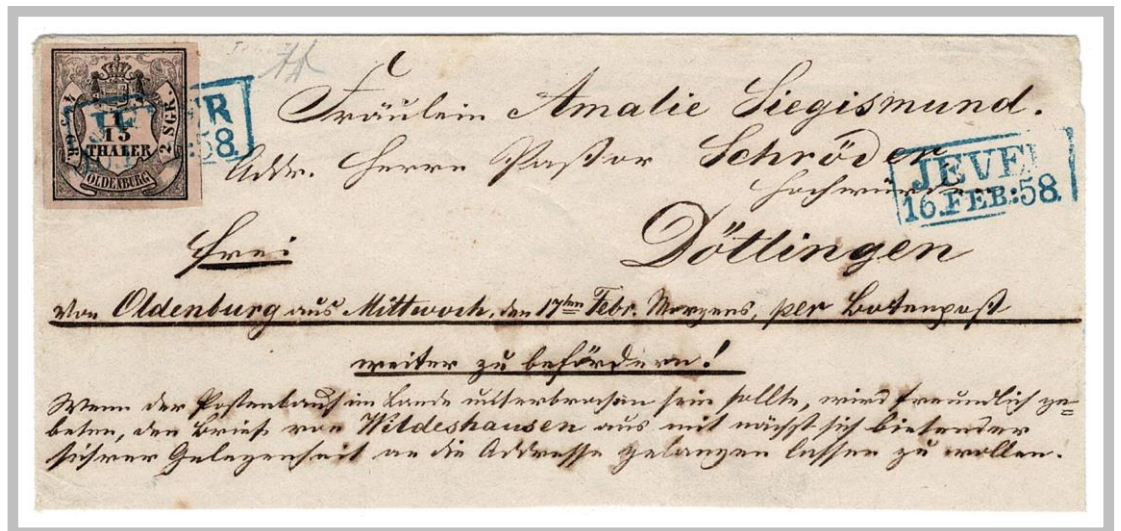 30 GR.
1
15
THALER
2 SGR.
OLDENBURG
JEVER
:58.
Fräulein Amalie Siegismund.
Addr. Herrn Pastor Schröder
Hochwürden
JEVE
16.FEB:58.
frei
Döttlingen
Von Oldenburg aus Mittwoch, den 17ten Febr. Morgens, per Botenpost
weiter zu befördern!
Wenn der Postenlauf im Lande unterbrochen sein sollte, wird freundlich ge=
beten, den Brief von Wildeshausen aus mit nächst sich bietender
sichrer Gelegenheit an die Addresse gelangen lassen zu wollen.